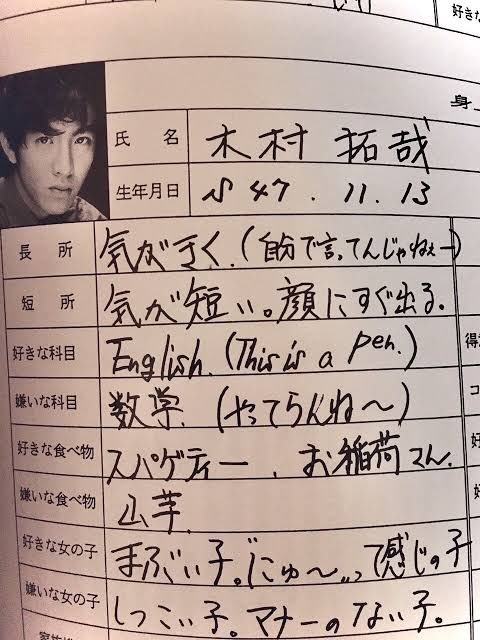 好きな
身上
氏名 木村拓哉
生年月日 S 47. 11. 13
長所 気がきく。(自分で言ってんじゃねぇー)
短所 気が短い。顔にすぐ出る。
好きな科目 English. (This is a pen.)
得意
嫌いな科目 数学. (やってらんね〜)
コ
好きな食べ物 スパゲティー、お稲荷さん.
好
嫌いな食べ物 山芋.
好
好きな女の子 まぶい子。"にゅ〜"って感じの子
嫌いな女の子 しつこい子。マナーのない子。